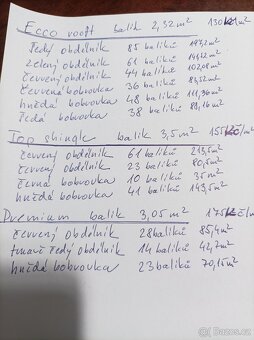 Ecco rooft balík 2,32m² 130kč/m²
šedý obdélník 85 balíků 197,2m²
zelený obdélník 61 balíků 141,52m²
červený obdélník 44 balíků 102,08m²
červená bobrovka 36 balíků 83,52m²
hnědá bobrovka 48 balíků 111,36m²
šedá bobrovka 38 balíků 88,16m²
Top shingle balík 3,5m² 155kč/m²
červený obdélník 61 balíků 213,5m²
červený obdélník 23 balíků 80,5m²
černá bobrovka 10 balíků 35m²
hnědá bobrovka 41 balíků 143,5m²
Premium balík 3,05m² 175kč/m²
červený obdélník 28 balíků 85,4m²
tmavě šedý obdélník 14 balíků 42,7m²
hnědá bobrovka 23 balíků 70,15m²
Bazos.cz